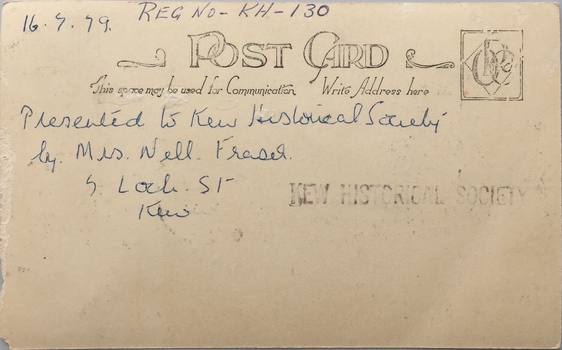 16.7.79. REG NO-KH-130
POST CARD
This space may be used for Communication. Write Address here
Presented to Kew Historical Society
by. Mrs. Nell Fraser.
Loch. St
Kew
KEW HISTORICAL SOCIETY